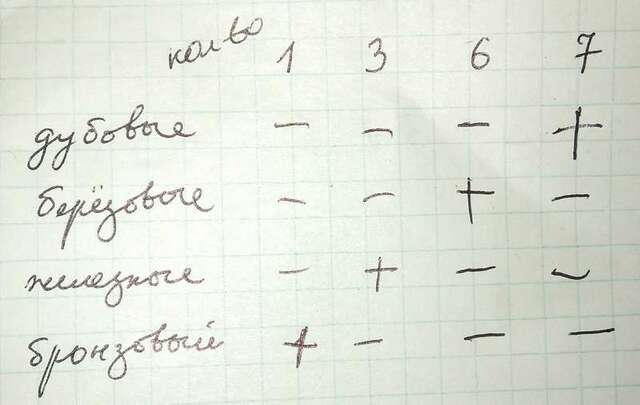 кол-во 1 3 6 7
дубовые - - - +
берёзовые - - + -
железные - + - -
бронзовый + - - -